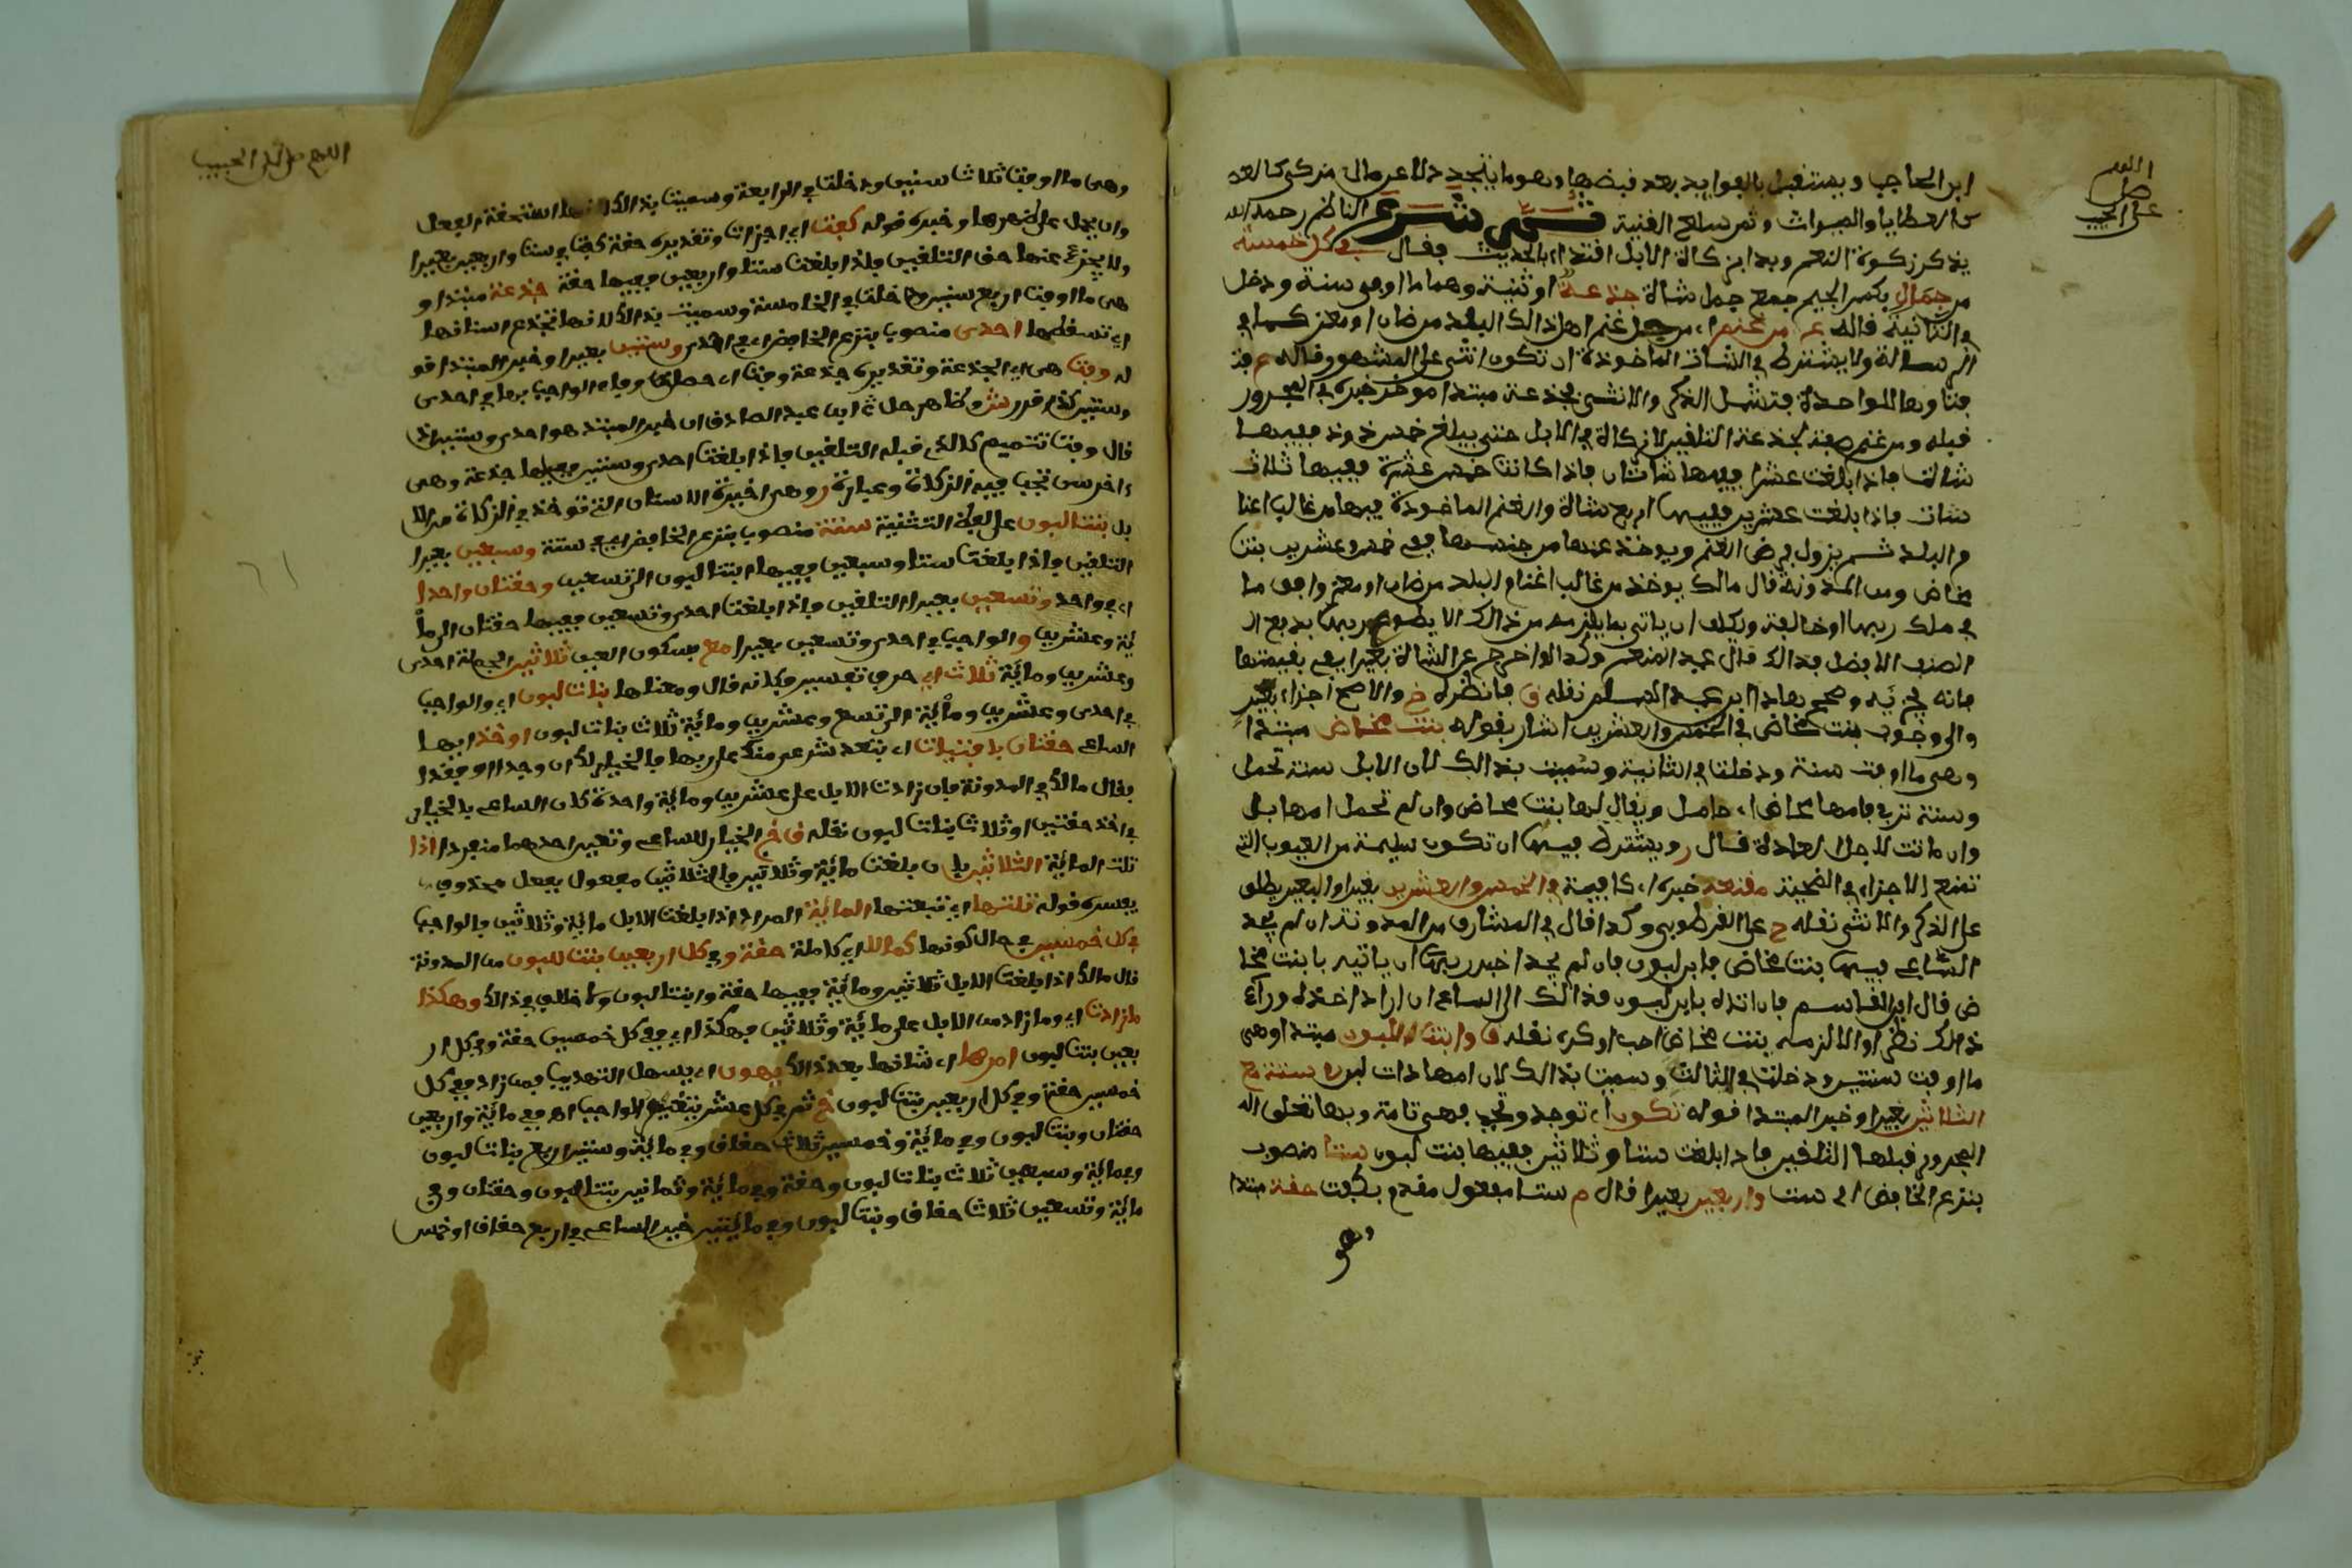 اللهم
صل
على الحبيب
ابن الحاجب ويستقبل بالفوايد بعد قبضها وهو ما يتجدد لا عن مال مزكى كالعد
من العطايا والميراث وثمن سلع القنية ثم شرع الناظم رحمه الله
يذكر زكوة النعم وبدا بزكاة الابل اقتداء بالحديث فقال في كل خمسة
من جمال بكسر الجيم جمع جمل شاة جذعة او ثنية وهما ما اوفى سنة ودخل
في الثانية قاله من غنم اي من جل غنم اهل ذلك البلد من ضان او معز كما في
الرسالة ولا يشترط في الشاة الماخوذة ان تكون انثى على المشهور وقاله
فتاوها للواحدة فتشمل الذكر والانثى فجذعة مبتدا موخر خبره في المجرور
قبله ومن غنم صفة لجذعة التلقين لا زكاة في الابل حتى يبلغ خمس ذود ففيها
شاة فاذا بلغت عشرا ففيها شاتان فاذا كانت خمس عشرة ففيها ثلاث
شاة فاذا بلغت عشرين ففيها اربع شاة والغنم الماخوذة فيها من غالب اغنا
م البلد ثم يزول فرض الغنم ويوخذ عنها من جنسها ففي خمس وعشرين بنت
مخاض ومن المدونة قال مالك يوخذ من غالب اغنام البلد من ضان او معز وافق ما
في ملك ربها او خالفه ويكلف ان ياتي بما يلزمه من ذلك الا يطوع ربها بدفع
الصنف الافضل فذلك قال عبد المنعم وكذا لو اخرج عن الشاة بعيرا يفي بقيمتها
فانه يجزيه وصحح هذا ابن عبد السلام نقله ق فانظره خ والاصح اجزاء بعير
والى وجوب بنت مخاض في الخمس والعشرين اشار بقوله بنت مخاض مبتدا
وهي ما اوفت سنة ودخلت في الثانية وسميت بذلك لان الابل سنة تحمل
وسنة تربي فامها مخاض اي حامل ويقال لها بنت مخاض وان لم تحمل امها بل
وان ماتت لاجل العادة قال ر ويشترط فيها ان تكون سليمة من العيوب التي
تمنع الاجزاء في الضحية مقنعة خبره اي كافية في الخمس والعشرين بعيرا والبعير يطلق
على الذكر والانثى نقله ح على القرطوبي وكذا قال في المشارق من المدونة ان لم يجد
الساعي فيها بنت مخاض فابن لبون فان لم يجدا خير ربها ان ياتيه بابنة مخا
ض قال ابن القاسم فان اتاه بابن لبون فذلك الى الساعي ان اراد اخذه وراى
ذلك نظرا والا لزمه بنت مخاض احب او كره نقله ق وابنة اللبون مبتدا وهي
ما اوفت سنتين ودخلت في الثالثة وسميت بذلك لان امها ذات لبون ستة مع
الثلاثين بعيرا وخبر المبتدا قوله تكون اي توجد وتجب فهي تامة وبها تعلق
المجرور قبلها التلقين فاذا بلغت ستا وثلاثين ففيها بنت لبون ستا منصوب
بنزع الخافض اي ست واربعين بعيرا قال م ستا مفعول مقدم بكفت حقة مبتدا
وهي
اللهم صل على الحبيب
وهي ما اوفت ثلاث سنين ودخلت في الرابعة وسميت بذلك لانها استحقت الفحل
وان يحمل على ظهرها وخبره قوله كفت اي اجزات وتقديره حقة كفت في ست واربعين بعيرا
ولا يجزئ عنها حق التلقين فاذا بلغت ستا واربعين ففيها حقة جذعة مبتدا و
هي ما اوفت اربع سنين ودخلت في الخامسة وسميت بذلك لانها تجذع اسنانها
اي تسقطها احدى منصوب بنزع الخافض اي في احدى وستين بعيرا وخبر المبتدا قو
له وفت هي اي الجذعة وتقديره جذعة وفت اي حصلت وفاء الواجب بها في احدى
وستين كذا قرر ش وظاهر حل ابن عبد الصادق ان خبر المبتدا هو احدى وستين اذ
قال وفت تتميم كالذي قبله التلقين فاذا بلغت احدى وستين ففيها جذعة وهي
اخر سن تجب فيه الزكاة وعبارة ر وهي اخيرة الاسنان التي توخذ في الزكاة من الا
بل بنتا لبون على لفظ التثنية ستة منصوب بنزع الخافض اي في ستة وسبعين بعيرا
التلقين فاذا بلغت ستا وسبعين ففيها ابنتا لبون الى تسعين وحقتان واحدا
اي في واحد وتسعين بعيرا التلقين فاذا بلغت احدى وتسعين ففيها حقتان الى ما
ئة وعشرين والواجب في احدى وتسعين بعيرا مع بسكون العين ثلاثين لجملة احدى
وعشرين ومائة ثلاث اي حرف تفسير فكانه قال ومعناها بنات لبون اي والواجب
في احدى وعشرين ومائة الى تسع وعشرين ومائة ثلاث بنات لبون او خذ ايها
الساعي حقتان بافتيات اي بتعد شرعي منك على ربها فالخيار لك ان وجدا او فقدا
فقال مالك في المدونة فان زادت الابل على عشرين ومائة واحدة كان الساعي بالخيار
في اخذ حقتين او ثلاث بنات لبون نقله ق خ الخيار للساعي وتعين احدهما منفردا اذا
تلت المائة الثلاثين بان بلغت مائة وثلاثين فالثلاثين مفعول بفعل محذوف
يفسره قوله تلتها اي تبعتها المائة المراد اذا بلغت الابل مائة وثلاثين فالواجب
في كل خمسين في حال كونها كمالا اي كاملة حقة وفي كل اربعين بنت للبون من المدونة
قال مالك اذا بلغت الابل ثلاثين ومائة ففيها حقة وابنتا لبون ولا خلاف في ذلك وهكذا
ما زادت اي وما زاد من الابل على مائة وثلاثين فهكذا اي ففي كل خمسين حقة وفي كل ار
بعين بنت لبون امرها اي شانها بعد ذلك يهون اي يسهل التهذيب فمن زاد ففي كل
خمسين حقة وفي كل اربعين بنت لبون خ ثم في كل عشر يتغير الواجب اه ففي مائة واربعين
حقتان وبنت لبون وفي مائة وخمسين ثلاث حقاق وفي مائة وستين اربع بنات لبون
وفي مائة وسبعين ثلاث بنات لبون وحقة وفي مائة وثمانين بنتا لبون وحقتان وفي
مائة وتسعين ثلاث حقاق وبنت لبون وفي مائتين خير الساعي في اربع حقاق او خمس